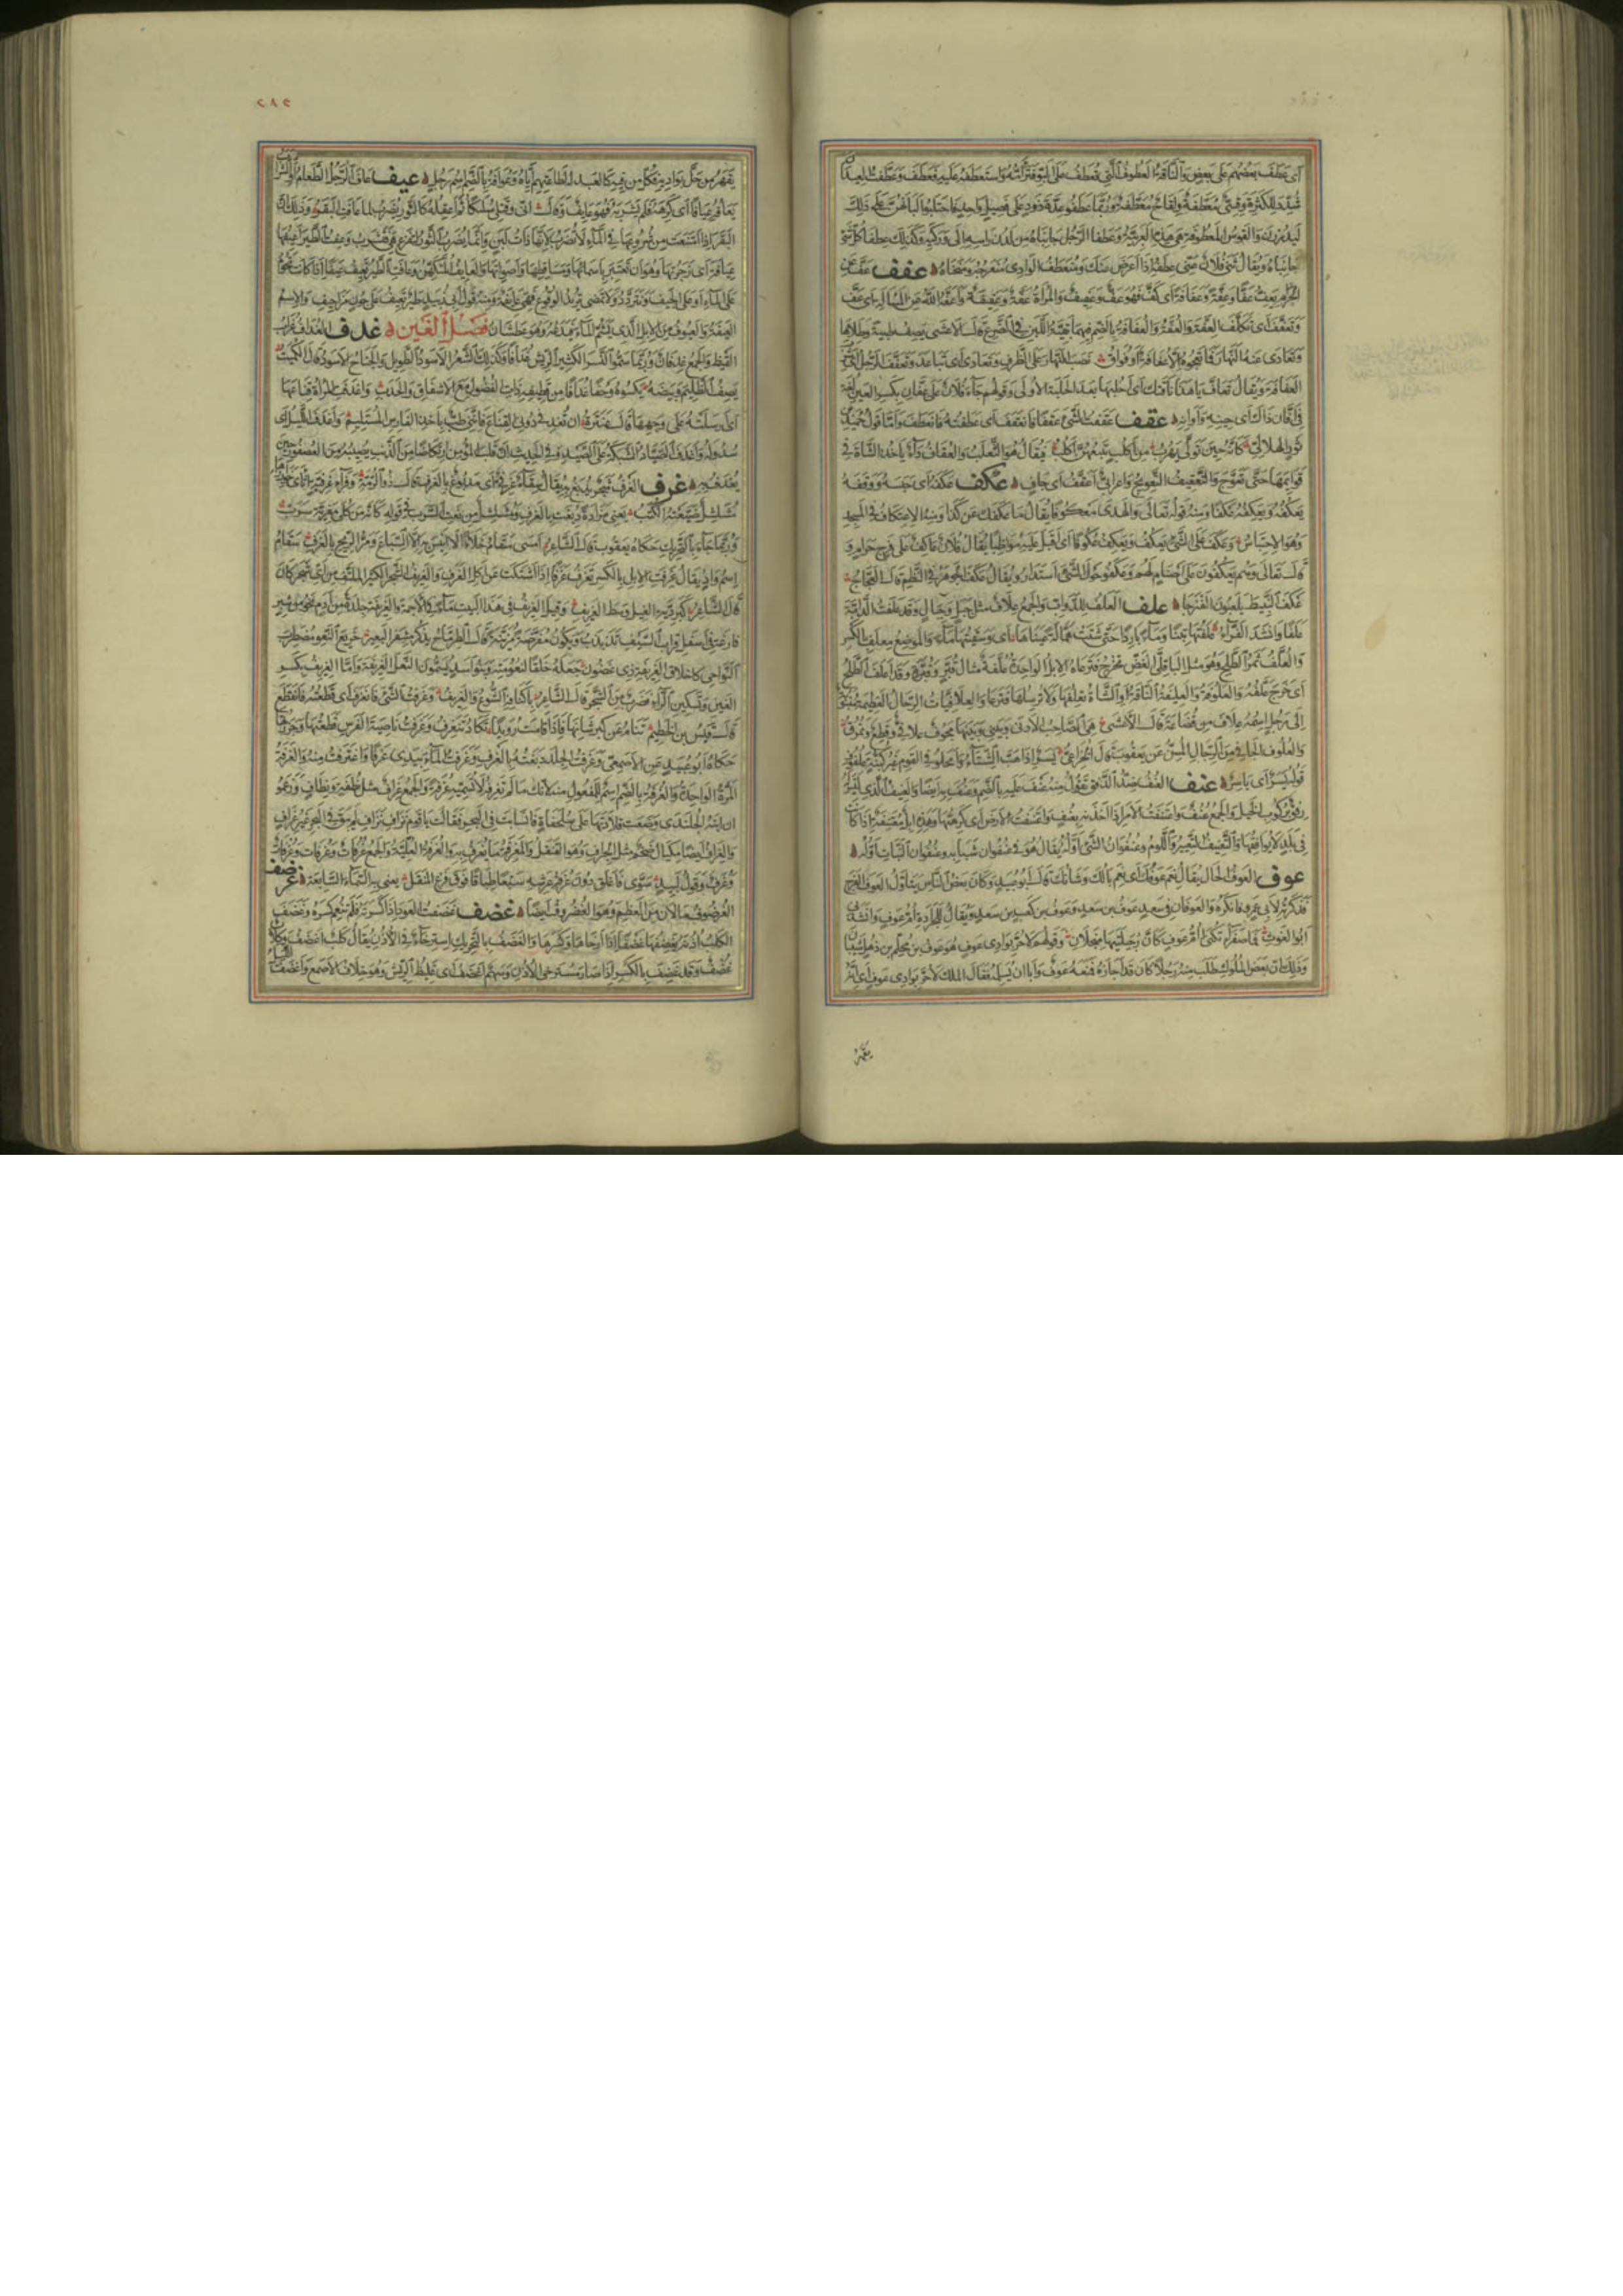 أى عطف بعضهم على بعض والناقة العطوف التى تعطف على البو فترأمه واستعطفه عليه فعطف وعطفت العيدان
شدد للكثرة وقسى معطفة ولقاح معطفة وربما عطفوا عدة ذود على فصيل واحد فاحتلبوا البانهن على ذلك
ليدررن له والقوس المعطوفة هى هذه العربية وعطفا الرجل جانباه من لدن راسه الى وركيه وكذلك عطفا كل شئ
جانباه ويقال ثنى فلان عنى عطفه اذا اعرض عنك ومنعطف الوادى منعرجه ومنحناه عفف عف عن
الحرام يعف عفا وعفة وعفافة اى كف فهو عف وعفيف والمراة عفة وعفيفة واعفه الله عن المسألة اى عف
وتعفف اى تكلف العفة والعفة والعفافة بالضم فيهما بقية اللبن فى الضرع قال الاعشى يصف ظبية وطلاها
وتعادى عنه النهار فما تعجوه الا عفافة او فواق نصب النهار على الظرف وتعادى اى تباعد وتعفف الرجل شرب
العفافة ويقال تعاف يا هذا ناقتك اى احلبها بعد الحلبة الاولى وقولهم جاء فلان على عفان بكسر العين لغة
فى افان ذاك اى حينه واوانه عقف عقفت الشئ عقفا فانعقف اى عطفته فانعطف واما قول حميد بن
ثور الهلالى كانه حين تولى يهرب من اكلب يتبعهن اكلب فيقال هو الثعلب والعقاف داء ياخذ الشاة فى
قوائمها حتى تعوج والتعقيف التعويج واعرابى اعقف اى جاف عكف عكفه اى حبسه ووقفه
يعكفه ويعكفه عكفا ومنه قوله تعالى والهدى معكوفا يقال ما عكفك عن كذا ومنه الاعتكاف فى المسجد
وهو الاحتباس وعكف على الشئ يعكف ويعكف عكوفا اى اقبل عليه مواظبا يقال فلان عاكف على فرج حرام و
قال تعالى وهم يعكفون على اصنام لهم وعكفوا حول الشئ استداروا ويقال عكف الجوهر فى النظم قال العجاج
عكف النبيط يلعبون الفنزجا علف العلف للدواب والجمع علاف مثل جبل وجبال وقد علفت الدابة
علفا وانشد الفراء علفتها تبنا وماء باردا حتى شتت همالة عيناها اى وسقيتها ماء والموضع معلف بالكسر
والعلف ثمر الطلح وهو مثل الباقلى الغض يخرج فترعاه الابل الواحدة علفة مثال قبر وقبرة وقد اعلف الطلح
اى خرج علفه والعلوفة والعليفة الناقة او الشاة تعلفها ولا ترسلها فترعى والعلافيات الرحال العظيمة تنسب
الى رجل اسمه علاف من قضاعة قال الاعشى هى الصاحب الادنى وبينى وبينها مجوف علافى وقطع ونمرق
والعلفوف الجافى من الرجال المسن عن يعقوب قال الخزاعى يسر اذا هب الشتاء وامحلوا فى القوم غير كبنة علفوف
قوله يسر اى ياسر عنف العنف ضد الرفق تقول منه عنف عليه بالضم وعنف به ايضا والعنيف الذى ليس له
رفق بركوب الخيل والجمع عنف واعتنفت الامر اذا اخذته بعنف واعتنفت الارض اى كرهتها وهذه ابل معتنفة اذا كانت
فى بلد لا يوافقها والتعنيف التعيير واللوم وعنفوان الشئ اوله يقال هو فى عنفوان شبابه وعنفوان النبات اوله
عوف العوف الحال يقال نعم عوفك اى نعم بالك وشانك قال ابو عبيد وكان بعض الناس يتاول العوف الفرج
فذكرته لابى عمرو فانكره والعوفان فى سعد عوف بن سعد وعوف بن كعب بن سعد ويقال للجرادة ام عوف وانشد
ابو الغوث فما صفراء تكنى ام عوف كان رجيلتيها منجلان وقولهم لا حر بوادى عوف هو عوف بن محلم بن ذهل بن شيبان
وذلك ان بعض الملوك طلب منه رجلا كان قد اجاره فمنعه عوف وابى ان يسلمه فقال الملك لا حر بوادى عوف اى انه
يقهر
٢٨٢
يقهر من حل بواديه فكل من فيه كالعبد له لطاعتهم اياه وعوافة بالضم اسم رجل عيف عاف الرجل الطعام او الشراب
يعافه عيافا اى كرهه فلم يشربه فهو عائف وقال انى وقتلى سليكا ثم اعقله كالثور يضرب لما عافت البقر وذلك ان
البقر اذا امتنعت من شروعها فى الماء لا تضرب لانها ذات لبن وانما يضرب الثور لتفزع هى فتشرب وعفت الطير اعيفها
عيافة اى زجرتها وهو ان تعتبر باسمائها ومساقطها واصواتها والعايف المتكهن وعافت الطير تعيف عيفا اذا كانت تحوم
على الماء او على الجيف وتتردد ولا تمضى تريد الوقوع فهى عائفة ومنه قول ابى زبيد طير تعيف على جون مزاحيف والاسم
العيفة والعيوف من الابل الذى يشم الماء فيدعه وهو عطشان فصل الغين غدف الغداف غراب
القيظ والجمع غدفان وربما سموا النسر الكثير الريش غدافا وكذلك الشعر الاسود الطويل والجناح الاسود قال الكميت
يصف الظليم وبيضه يكسوه وحفا غدافا من قطيفته ذات الفضول مع الاشفاق والحدب واغدفت المراة قناعها
اى ارسلته على وجهها قال عنترة ان تغدفى دونى القناع فاننى طب باخذ الفارس المستلئم واغدف الليل اى ارخى
سدوله واغدف الصياد الشبكة على الصيد وفى الحديث ان قلب المؤمن اشد ارتكاضا من الذنب يصيبه من العصفور حين
يغدف به غرف الغرف شجر يدبغ به يقال سقاء غرفى اى مدبوغ بالغرف قال ذو الرمة وفراء غرفية اثأى خوارزها
مشلشل ضيعته بينها الكتب يعنى مزادة دبغت بالغرف ومشلشل من نعت السرب فى قوله كانه من كلى مفرية سرب
وربما جاء بالتحريك حكاه يعقوب قال الشاعر امسى سقام خلاء لا انيس به الا السباع ومر الريح بالغرف سقام
اسم واد ويقال غرفت الابل بالكسر تغرف غرفا اذا اشتكت عن اكل الغرف والغريف الشجر الكثير الملتف من اى شجر كان
قال الشاعر كبردية الغيل وسط الغريف وقيل الغريف فى هذا البيت ماء فى الاجمة والغريفة جلدة من ادم نحو من شبر
فارغة فى اسفل قراب السيف تذبذب وتكون مفرضة مزينة قال الطرماح يذكر مشفر البعير خريع النعو مضطرب
النواحى كاخلاق الغريفة ذى غضون جعله خلقا لنعومته وبنو اسد يسمون النعل الغريفة واما الغريف بكسر
الغين وتسكين الراء فضرب من الشجر قال الشاعر بأكناف الشوع والغريف وغرفت الشئ فانغرف اى قطعته فانقطع
قال قيس بن الخطيم تنام عن كبر شانها فاذا قامت رويدا تكاد تنغرف وغرفت ناصية الفرس قطعتها وجززتها
حكاه ابو عبيد عن الاصمعى وغرفت الجلد دبغته بالغرف وغرفت الماء بيدى غرفا واغترفت منه والغرفة
المرة الواحدة والغرفة بالضم اسم للمفعول منه لانك ما لم تغرفه لا تسميه غرفة والجمع غراف مثل نطفة ونطاف وزعموا
ان ابنة الجلندى وضعت قلادتها على سلحفاة فانسابت فى البحر فقالت يا قوم نزاف نزاف لم يبق فى البحر غير غراف
والغراف ايضا مكيال ضخم مثل الجراف وهو القنقل والمغرفة ما يغرف به والغرفة العلية والجمع غرفات وغرفات وغرفات
وغرف وقول لبيد سوى فاغلق دون غرفة عرشه سبعا طباقا فوق فرع المنقل يعنى به السماء السابعة غرضف
الغرضوف ما لان من العظم وهو الغضروف ايضا غضف غضفت العود اذا كسرته فلم تنعم كسره وغضف
الكلب اذنه يغضفها غضفا اذا ارخاها وكسرها والغضف بالتحريك استرخاء فى الاذن يقال كلب اغضف وكلاب
غضف وقد غضف بالكسر اذا صار مسترخى الاذن وسهم اغضف اى غليظ الريش وهو خلاف الاصمع واغضف